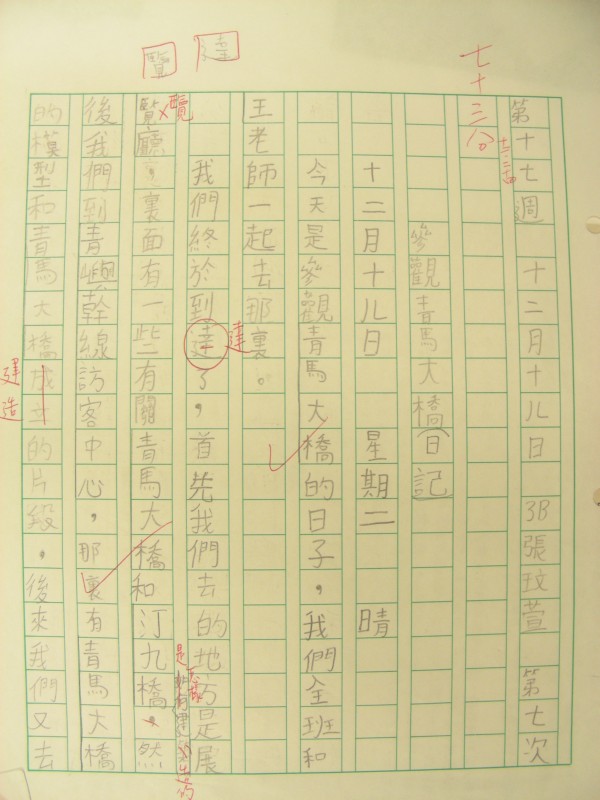 第十七週 十二月十八日 3B 張玟萱 第七次
七十三分
參觀青馬大橋(日記
十二月十八日 星期二 晴
今天是參觀青馬大橋的日子，我們全班和
王老師一起去那裏。
我們終於到達了，首先我們去的地方是展
達
覽廳，裏面有一些有關青馬大橋和汀九橋。然
覽
後我們到青嶼幹線訪客中心，那裏有青馬大橋
的模型和青馬大橋成立的片段，後來我們又去
建造
達
覽